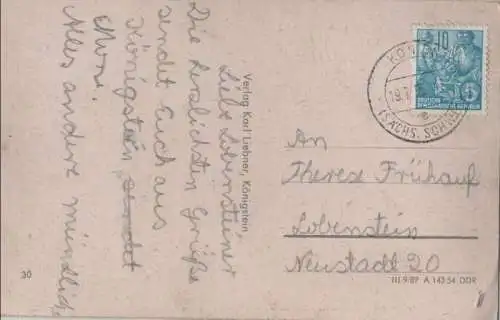 Liebe Lobensteiner
Die herzlichsten Grüße
sendet Euch aus
Königstein sendet
Alles andere mündlich
Verlag Karl Liebner, Königstein
10
DEUTSCHE
DEMOKRATISCHE REPUBLIK
5
(SÄCHS. SCHW
An
Therese Frühauf
Lobenstein
Neustadt 20
30
III-9/87 A 143 54 DDR